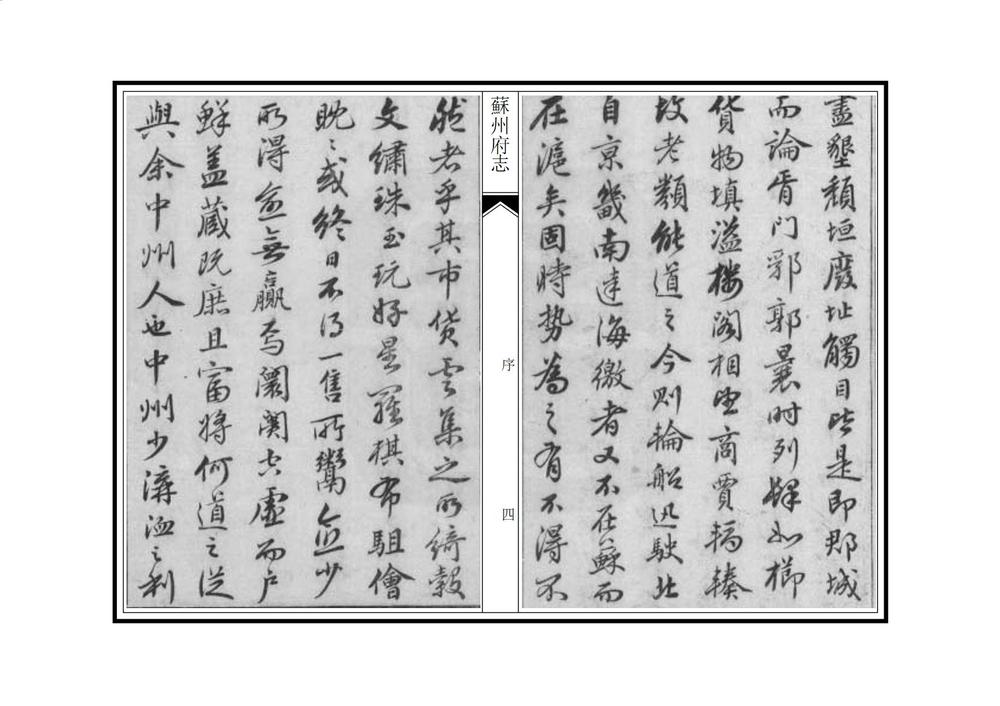 盡墾頹垣廢址觸目皆是即郡城
而論胥門郛郭曩時列肆如櫛
貨物填溢樓閣相望商賈輻輳
故老類能道之今則輪船迅駛北
自京畿南達海徼者又不在蘇而
在滬矣固時勢為之有不得不
蘇州府志
序
四
然者乎其市貨雲集之所綺縠
文繡珠玉玩好星羅棋布駔儈
眈〻或終日不得一售所鬻愈少
所得愈無贏焉闤闠空虛而戶
鮮蓋藏既庶且富將何道之從
與余中州人也中州少溝洫之利